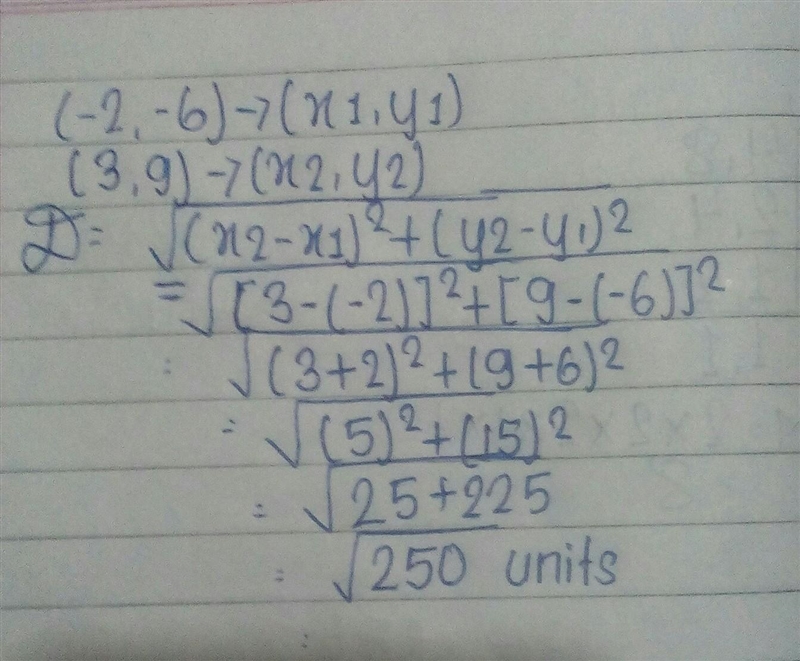 (-2,-6)→(x1,y1)
(3,9)→(x2,y2)
D= √(x2-x1)²+(y2-y1)²
=√[3-(-2)]²+[9-(-6)]²
: √(3+2)²+(9+6)²
= √(5)²+(15)²
= √25+225
= √250 units